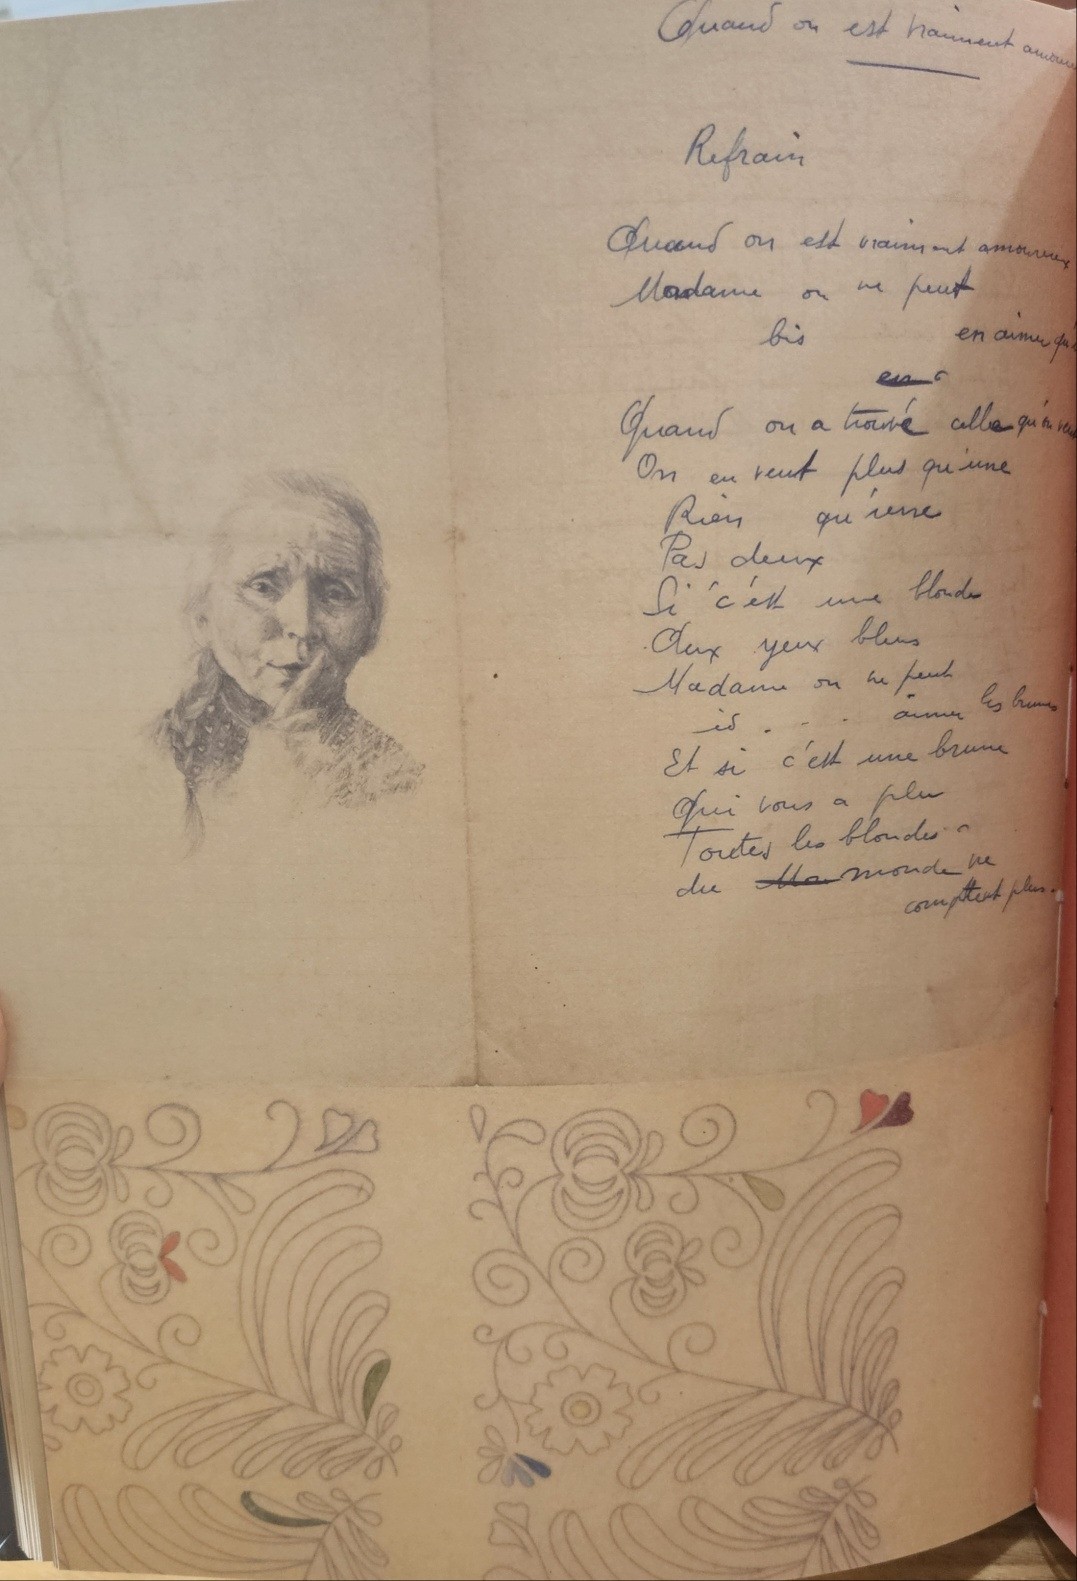 Quand on est vraiment
Refrain
Quand on est vraiment amoureux
Madame on ne peut
bis en aimer
en
Quand on a trouvé celle qu'on
On en veut plus qu'une
Rien qu'une
Pas deux
Si c'est une blonde
Aux yeux bleus
Madame on ne peut
id . - . aimer les brunes
Et si c'est une brune
Qui vous a plu
Toutes les blondes
du Ma monde ne
comptent plus.